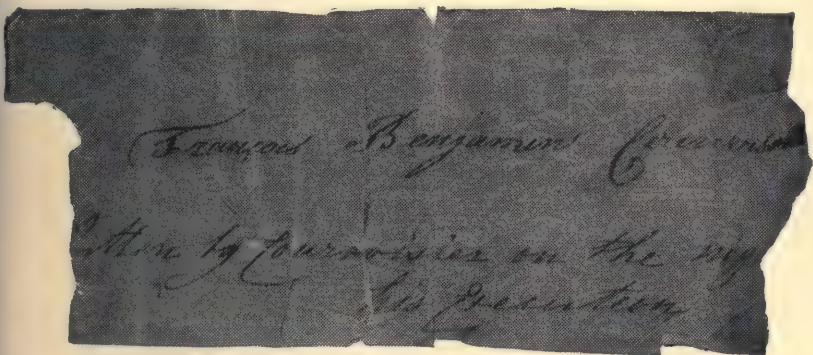 François Benjamin Courvoisier
itten by Courvoisier on the nig
his Execution